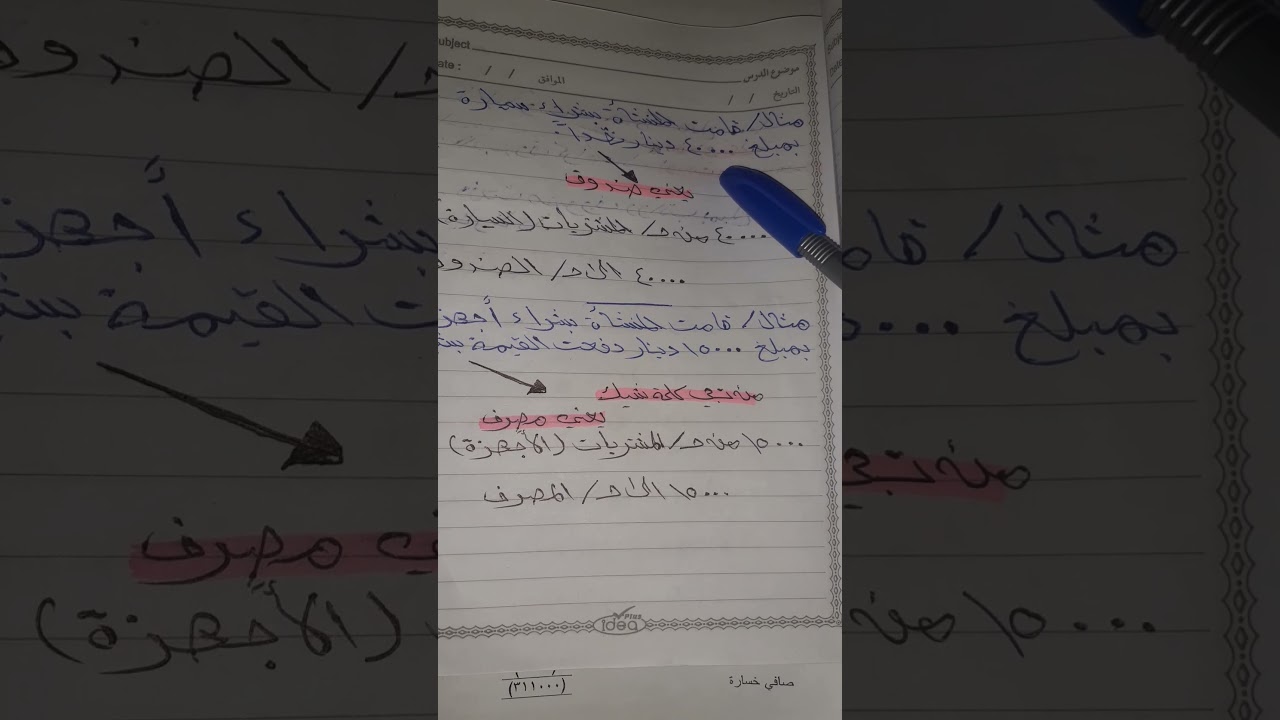 ubject
موضوع الدرس
ate : / / الموافق
التاريخ / /
مثال/ قامت المنشأة بشراء سيارة
بمبلغ ٤٠٠٠٠ دينار نقداً.
يعني صندوق
٤٠٠٠٠ من حـ/ المشتريات (السيارة)
٤٠٠٠٠ الى حـ/ الصندو
مثال/ قامت المنشأة بشراء أجهز
بمبلغ ١٥٠٠٠ دينار دفعت القيمة بش
من تجي كلمة شيك
يعني مصرف
١٥٠٠٠ من حـ/ المشتريات (الأجهزة)
١٥٠٠٠ الى حـ/ المصرف
idea Plus
صافي خسارة
(٣١١٠٠٠)